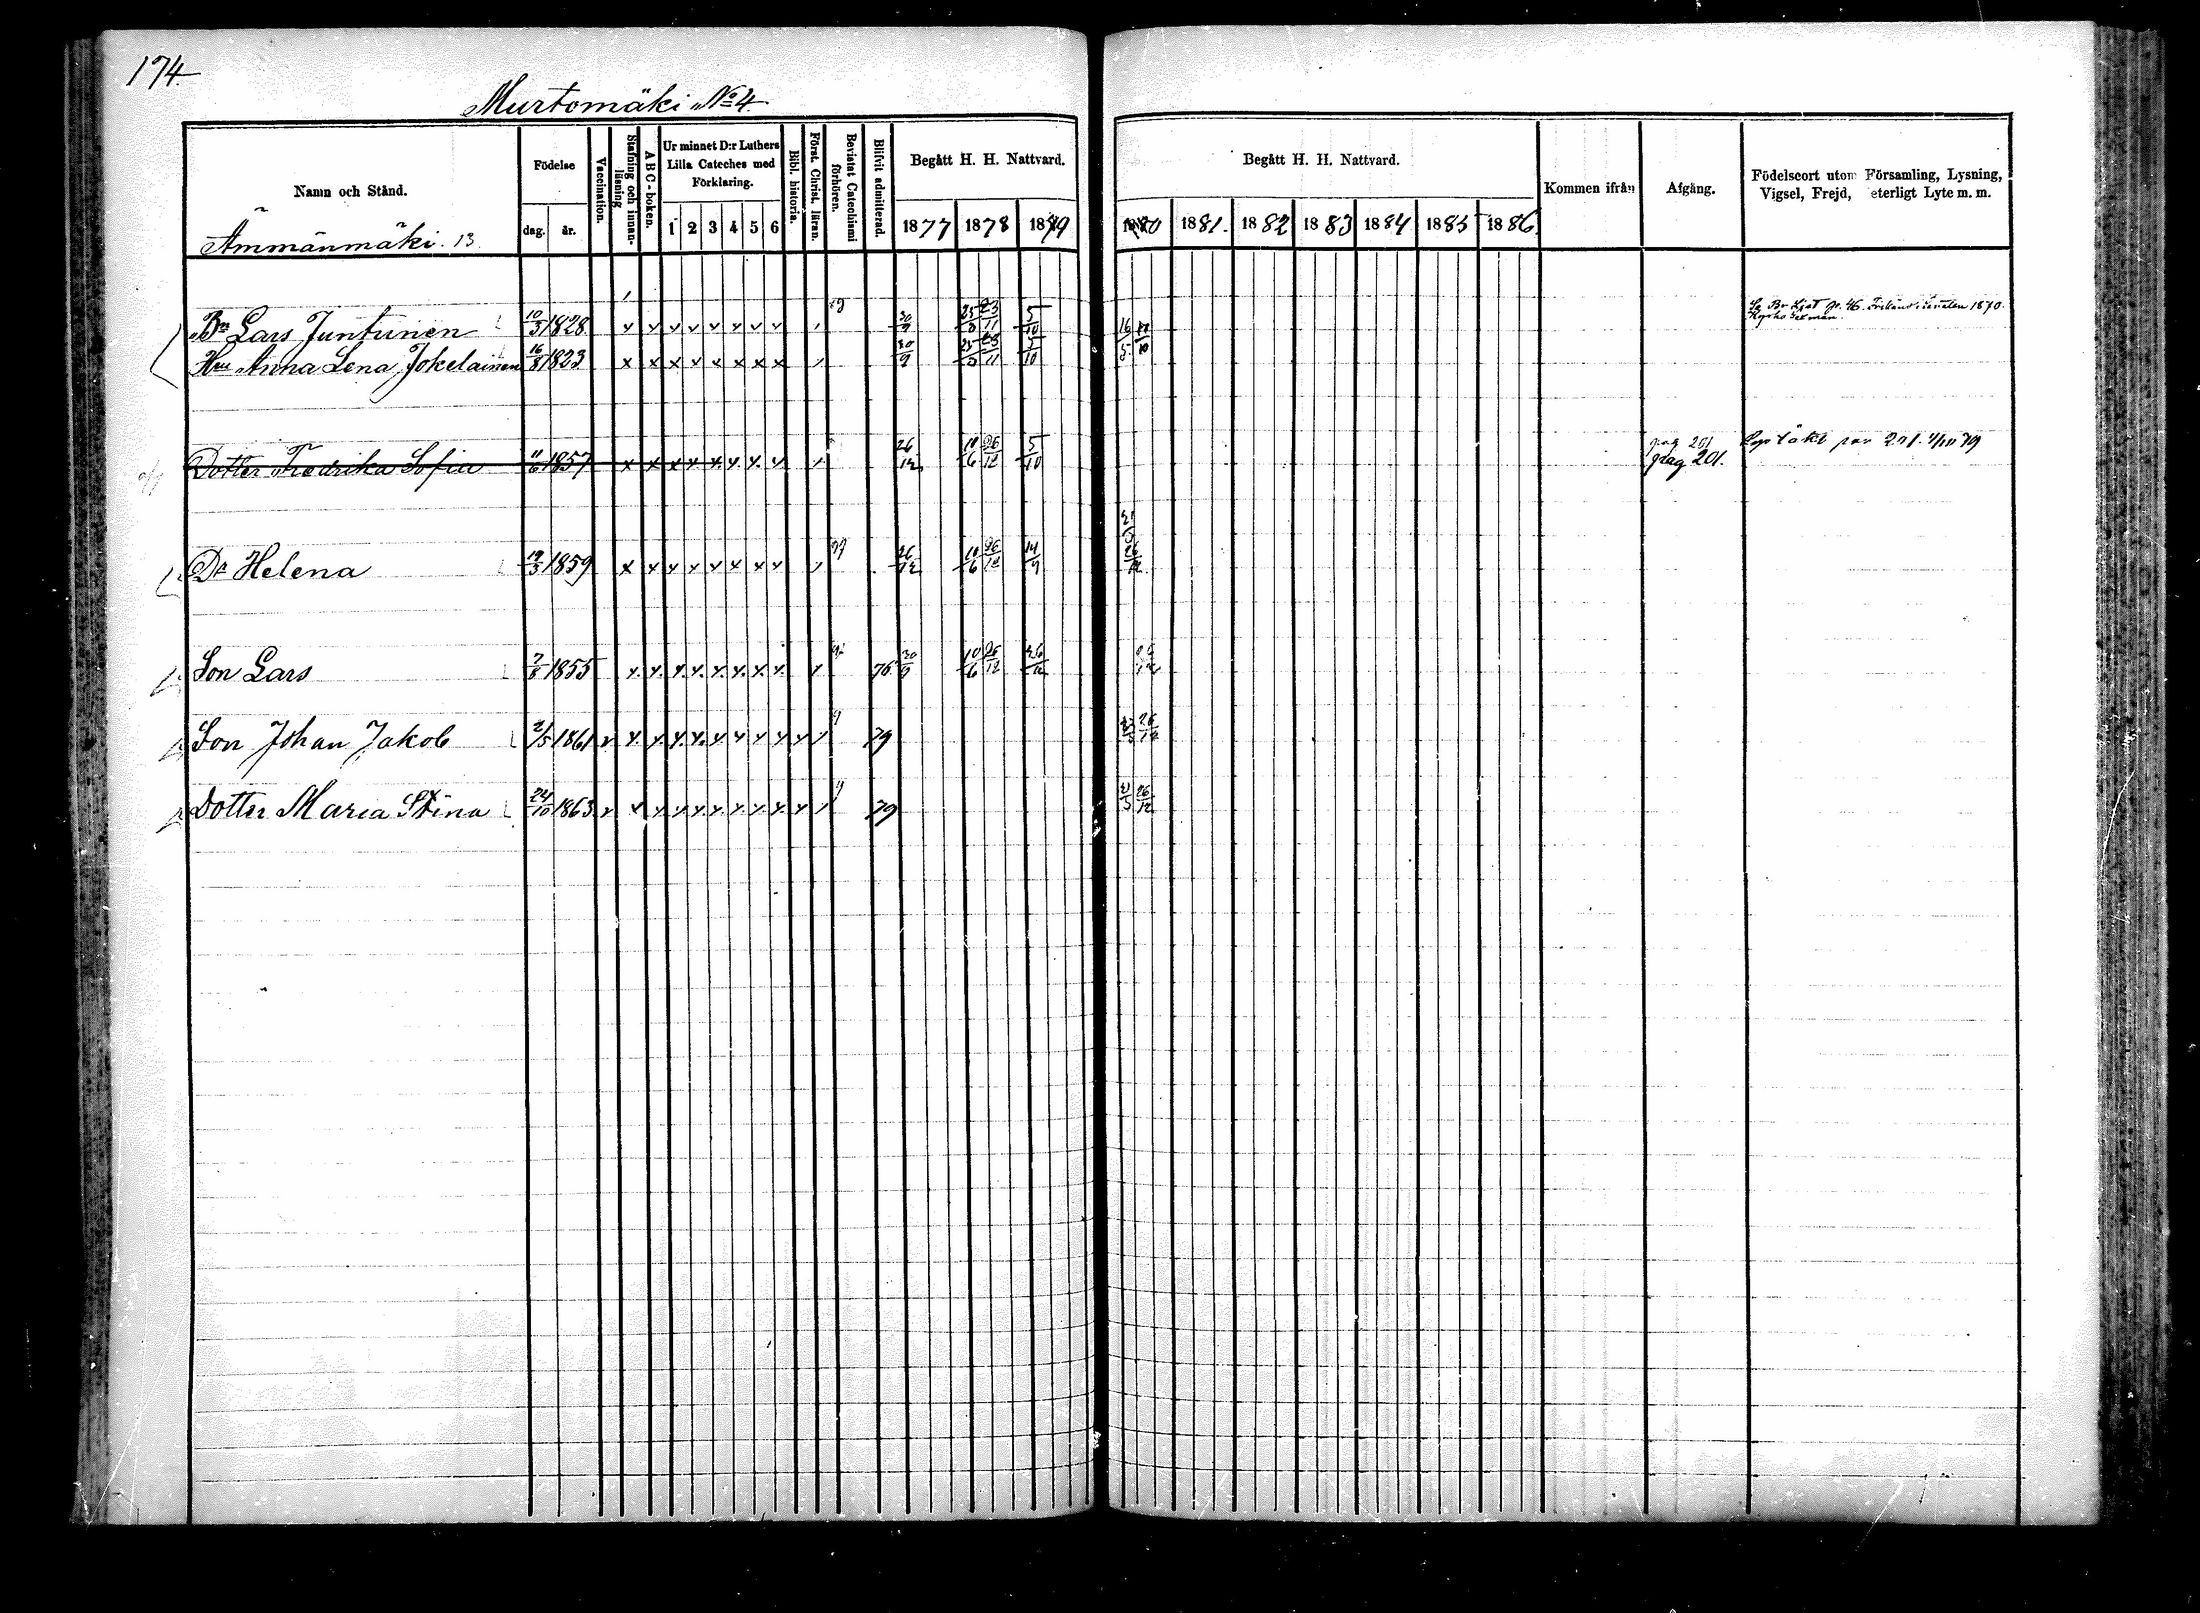 174.
Murtomäki No 4.
Namn och Stånd.
Födelse
dag.
år.
Vaccination.
Stafning och innan-läsning
ABC-boken.
Ur minnet D:r Luthers Lilla Cateches med Förklaring.
1 2 3 4 5 6
Bibl. historia.
Först. Christ. läran.
Bevistat Catechismi förhören.
Blifvit admitterad.
Begått H. H. Nattvard.
1877 1878 1879
Begått H. H. Nattvard.
1880 1881. 1882 1883 1884 1885 1886.
Kommen ifrån
Afgång.
Födelseort utom Församling, Lysning,
Vigsel, Frejd, eterligt Lyte m. m.
Ämmänmäki. 13.
Bn Lars Juntunen 10/3 1828 x x x x x x x x 30/9 25/3 23/11 5/10 16/5
Hru Anna Lena Jokelainen 16/8 1823 x x x x x x x x 30/9 25/3 23/11 5/10
Dotter Fredrika Sofia 11/6 1857 x x x x x x x x 26/12 10/6 26/12 5/10 pag 201
pag 201.
Dr Helena 19/3 1859 x x x x x x x x 26/12 10/6 26/12 14/9 26/12
Son Lars 7/8 1855 x x x x x x x x 76 30/9 10/6 26/12 26/12
Son Johan Jakob 2/5 1861 v x x x x x x x x x 79 23/5 26/12
Dotter Maria Stina 24/10 1863 v x x x x x x x x x 79 21/3 26/12